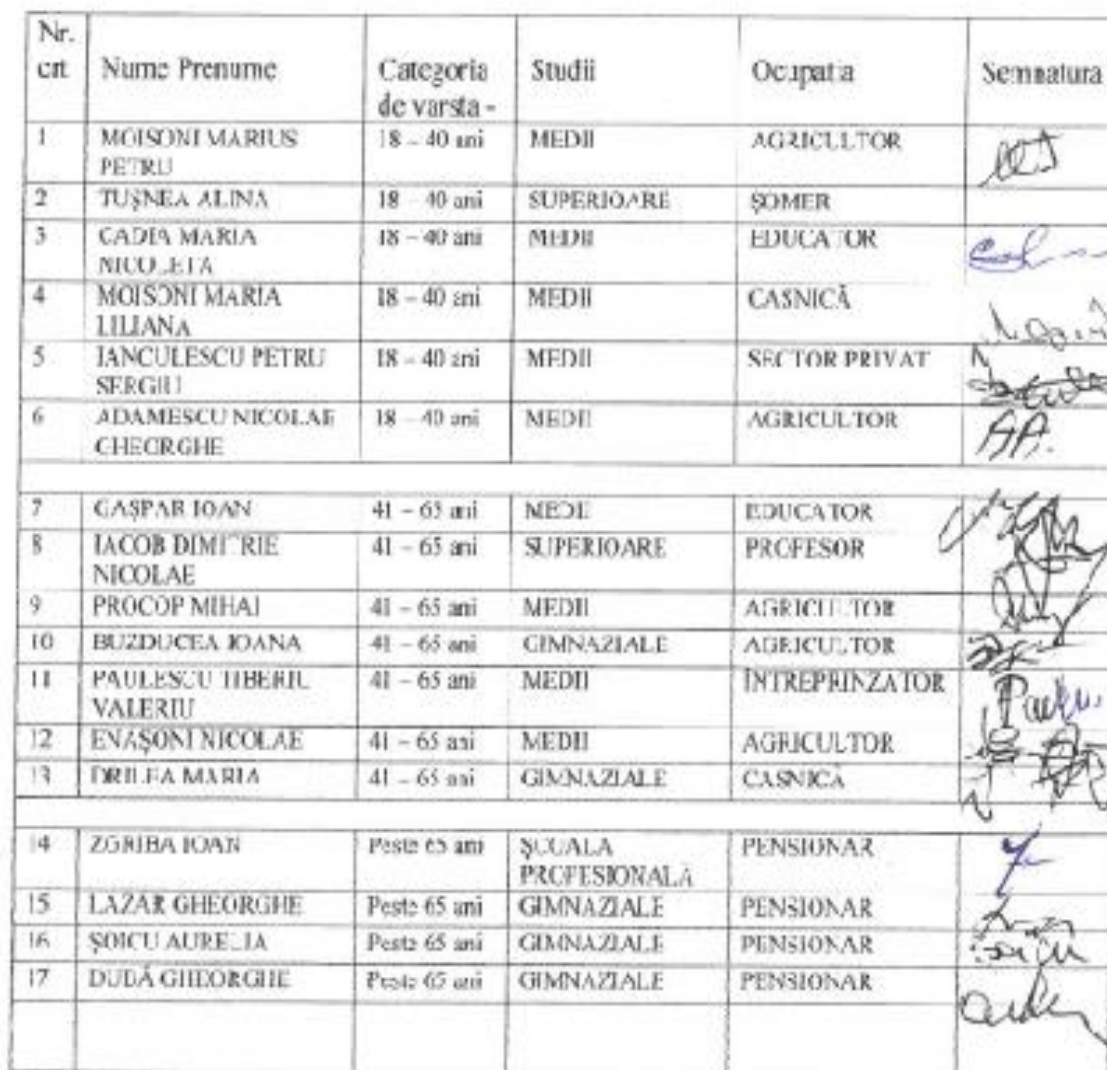 Nr. crt Nume Prenume Categoria de varsta - Studii Ocupatia Semnatura
1 MOISONI MARIUS PETRU 18 – 40 ani MEDII AGRICULTOR
2 TUȘNEA ALINA 18 – 40 ani SUPERIOARE ȘOMER
3 CADIA MARIA NICOLETA 18 – 40 ani MEDII EDUCATOR
4 MOISONI MARIA LILIANA 18 – 40 ani MEDII CASNICĂ
5 IANCULESCU PETRU SERGIU 18 – 40 ani MEDII SECTOR PRIVAT
6 ADAMESCU NICOLAE GHEORGHE 18 – 40 ani MEDII AGRICULTOR
7 GAȘPAR IOAN 41 – 65 ani MEDII EDUCATOR
8 IACOB DIMITRIE NICOLAE 41 – 65 ani SUPERIOARE PROFESOR
9 PROCOP MIHAI 41 – 65 ani MEDII AGRICULTOR
10 BUZDUCEA IOANA 41 – 65 ani GIMNAZIALE AGRICULTOR
11 PAULESCU TIBERIU VALERIU 41 – 65 ani MEDII ÎNTREPRINZATOR
12 ENAȘONI NICOLAE 41 – 65 ani MEDII AGRICULTOR
13 DRILEA MARIA 41 – 65 ani GIMNAZIALE CASNICĂ
14 ZGRIBA IOAN Peste 65 ani ȘCOALA PROFESIONALĂ PENSIONAR
15 LAZAR GHEORGHE Peste 65 ani GIMNAZIALE PENSIONAR
16 ȘOICU AURELIA Peste 65 ani GIMNAZIALE PENSIONAR
17 DUDĂ GHEORGHE Peste 65 ani GIMNAZIALE PENSIONAR